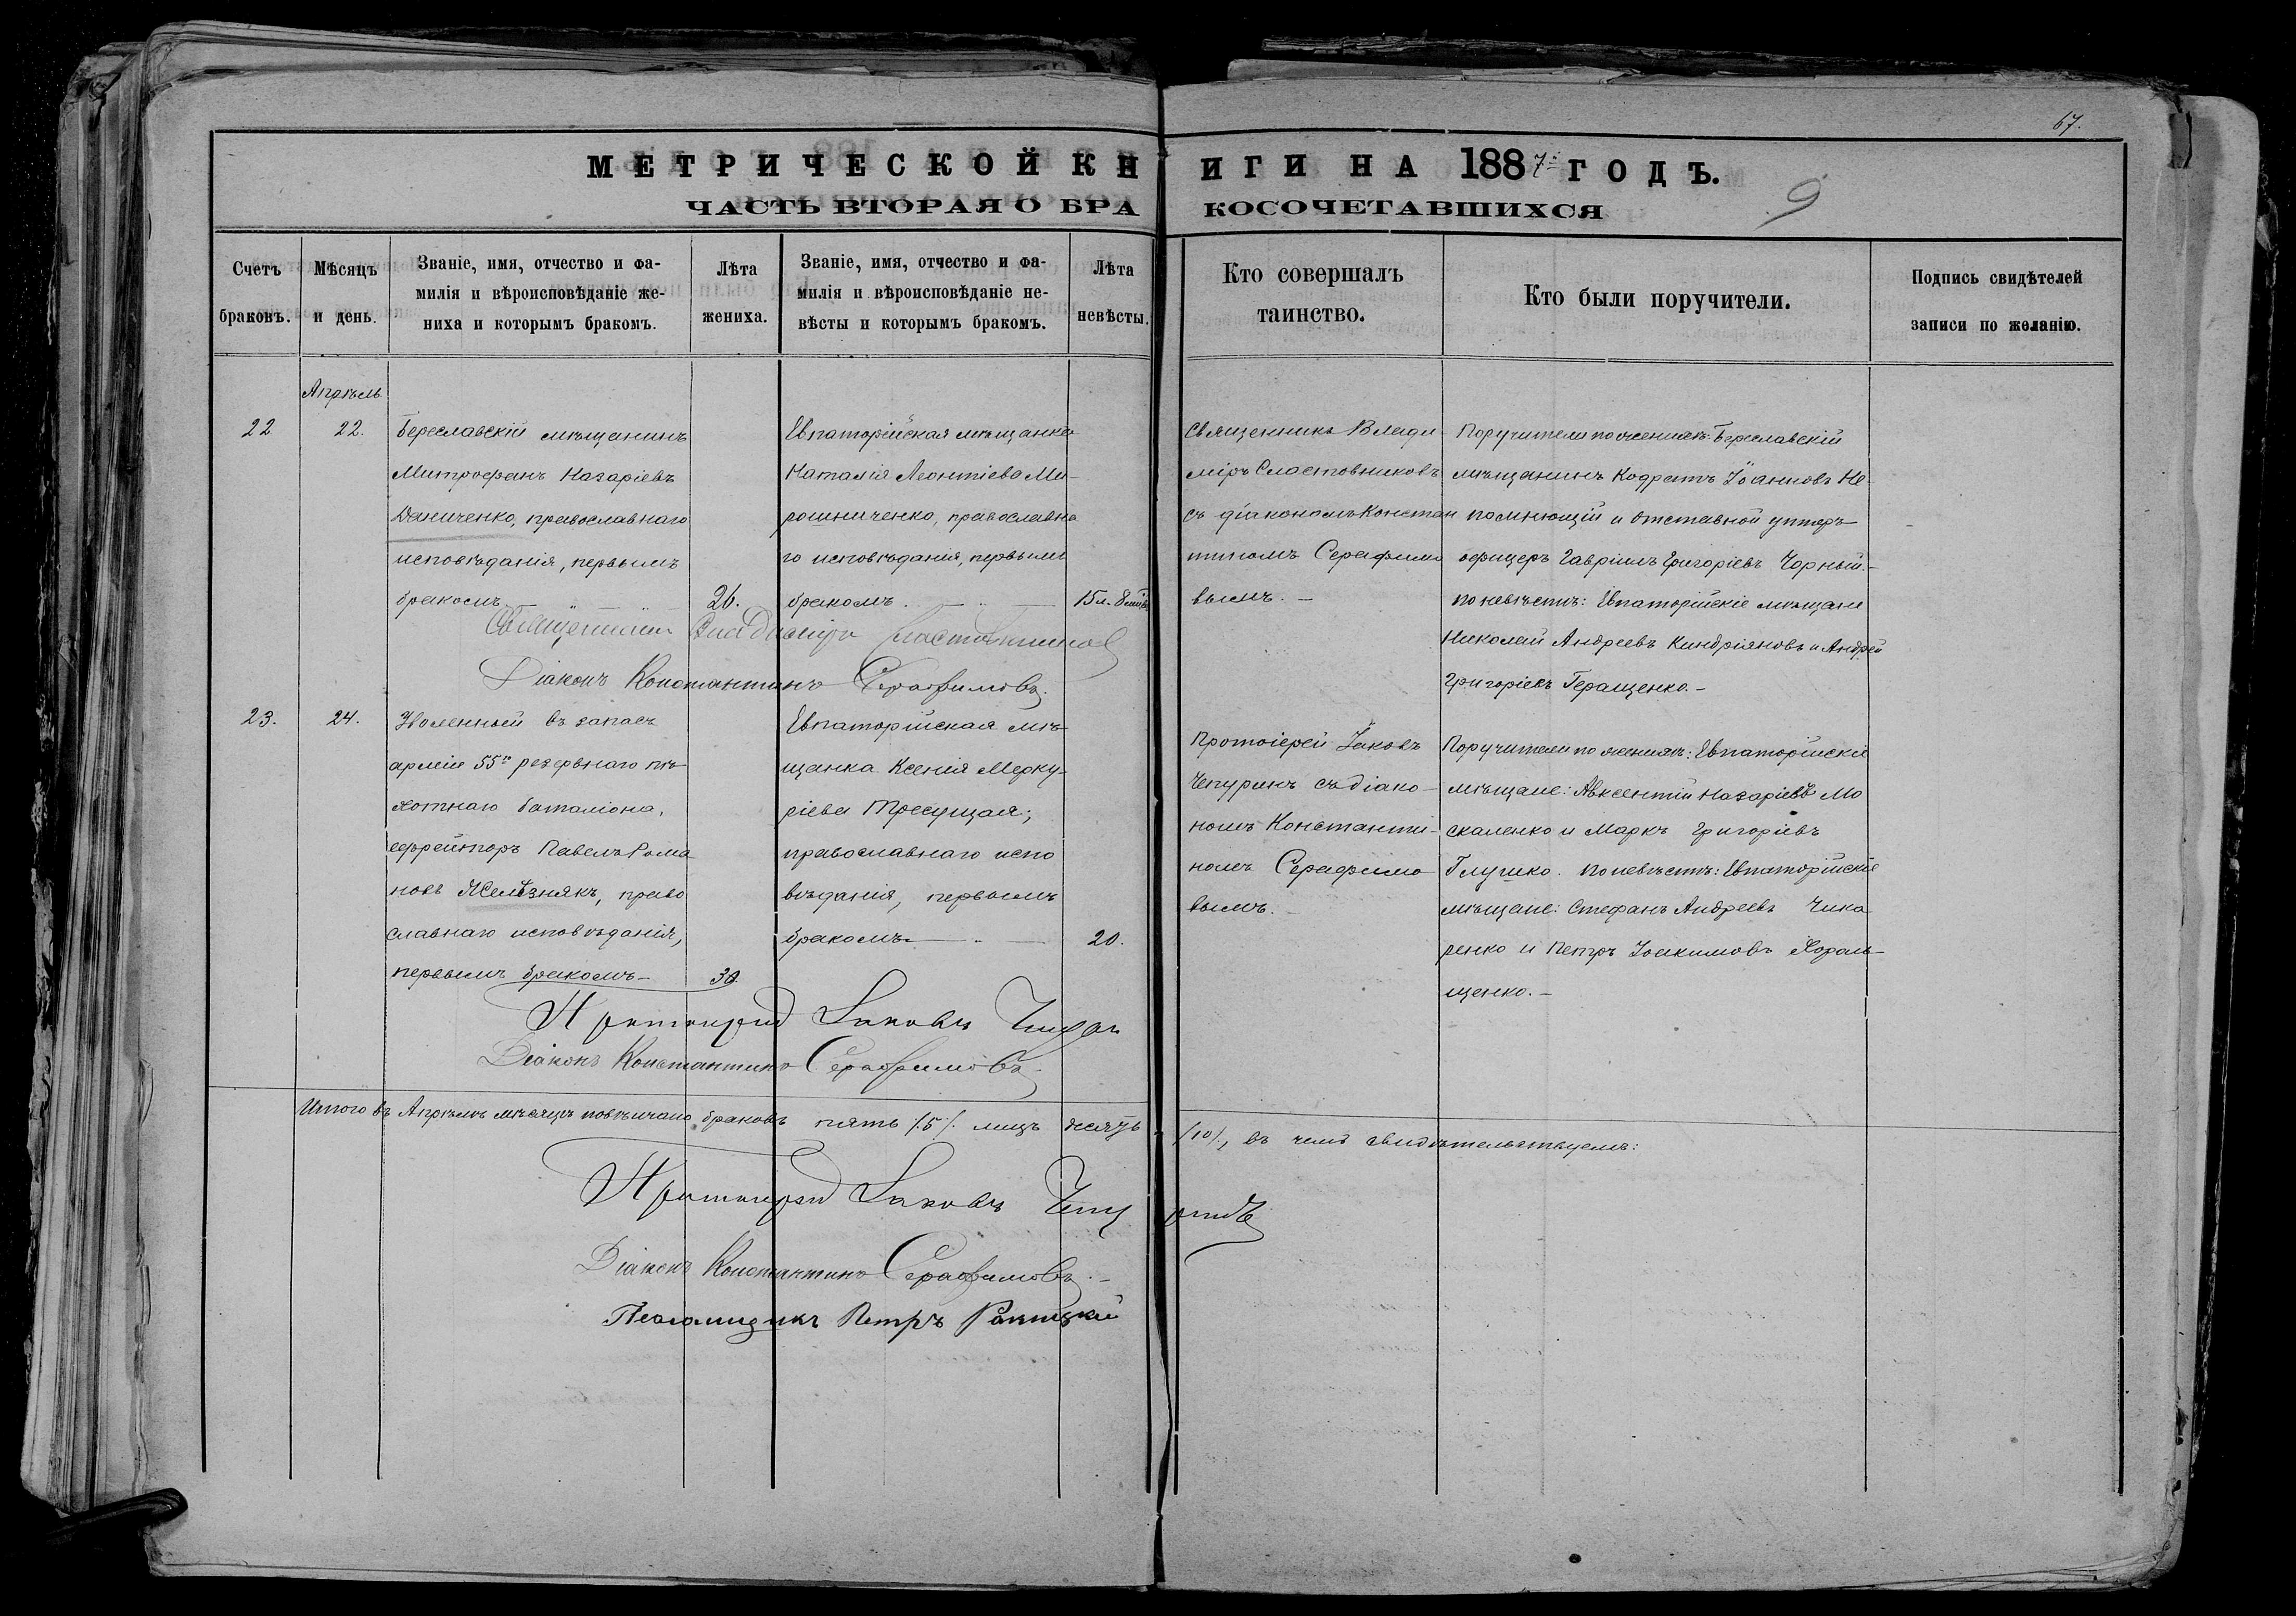 67.
МЕТРИЧЕСКОЙ КНИГИ НА 1887й ГОДЪ.
9
ЧАСТЬ ВТОРАЯ О БРАКОСОЧЕТАВШИХСЯ
Счетъ
браковъ.
Мѣсяцъ
и день.
Званіе, имя, отчество и фа-
милія и вѣроисповѣданіе же-
ниха и которымъ бракомъ.
Лѣта
жениха.
Званіе, имя, отчество и фа-
милія и вѣроисповѣданіе не-
вѣсты и которымъ бракомъ.
Лѣта
невѣсты.
Кто совершалъ
таинство.
Кто были поручители.
Подпись свидѣтелей
записи по желанію.
Апрѣль
22
22.
Береславскій мѣщанинъ
Митрофанъ Назаріевъ
Даниченко, православнаго
исповѣданія, первымъ
бракомъ.
26.
Евпаторійская мѣщанка
Наталія Леонтіева Ми-
рошниченко, православна
го исповѣданія, первымъ
бракомъ.
15л. 8
Священникъ Влади
міръ Сластовниковъ
съ діакономъ Констан
тиномъ Серафимо
вымъ. –
Поручители по женихѣ: Береславскій
мѣщанинъ Кодратъ Іоанновъ Не
помнющій и отставной унтеръ
офицеръ Гавріилъ Григоріевъ Чорный.-
по невѣстѣ: Евпаторійскіе мѣщане
Николай Андреевъ Киндріяновъ и Андрей
Григоріевъ Геращенко. –
Священникъ Владиміръ Сластовниковъ
Діаконъ Константинъ Серафимовъ.
23.
24.
Уволенный въ запасъ
арміи 55го резервнаго пѣ
хотнаго баталіона,
ефрейторъ Павелъ Рома
новъ Желѣзнякъ, право
славнаго исповѣданія,
первымъ бракомъ –
30.
Евпаторійская мѣ
щанка Ксенія Мерку-
ріева Тресущая;
православнаго испо
вѣданія, первымъ
бракомъ
20.
Протоіерей Іаковъ
Чепуринъ съ діако-
номъ Константи-
номъ Серафимо
вымъ. –
Поручители по женихѣ: Евпаторійскіе
мѣщане: Авксентій Назаріевъ Мо
скаленко и Маркъ Григоріевъ
Глушко. по невѣстѣ: Евпаторійскіе
мѣщане: Стефанъ Андреевъ Чика
ренко и Петръ Іоакимовъ Хораль-
щенко. –
Протоіерей Іаковъ Чепуринъ
Діаконъ Константинъ Серафимовъ.
Итого въ Апрѣлѣ мѣсяцѣ повѣнчано браковъ пять /5/. лицъ десять /10/, въ чемъ свидѣтельствуемъ:
Протоіерей Іаковъ Чепуринъ
Діаконъ Константинъ Серафимовъ. –
Псаломщикъ Петръ